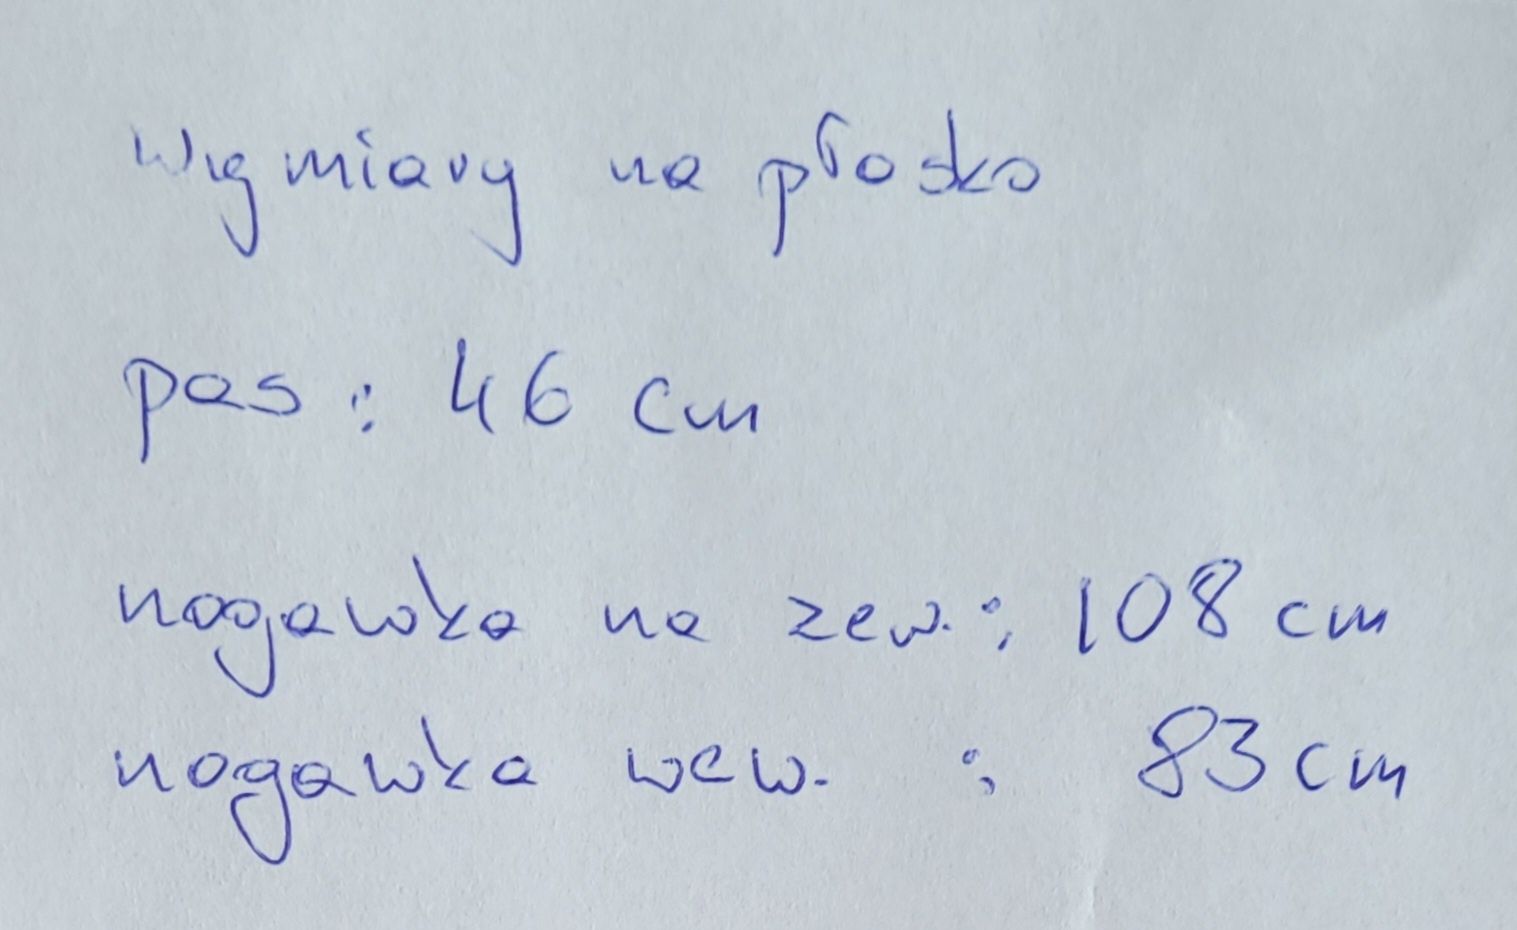 Wymiary na płasko
pas : 46 cm
nogawka na zew. : 108 cm
nogawka wew. : 83 cm